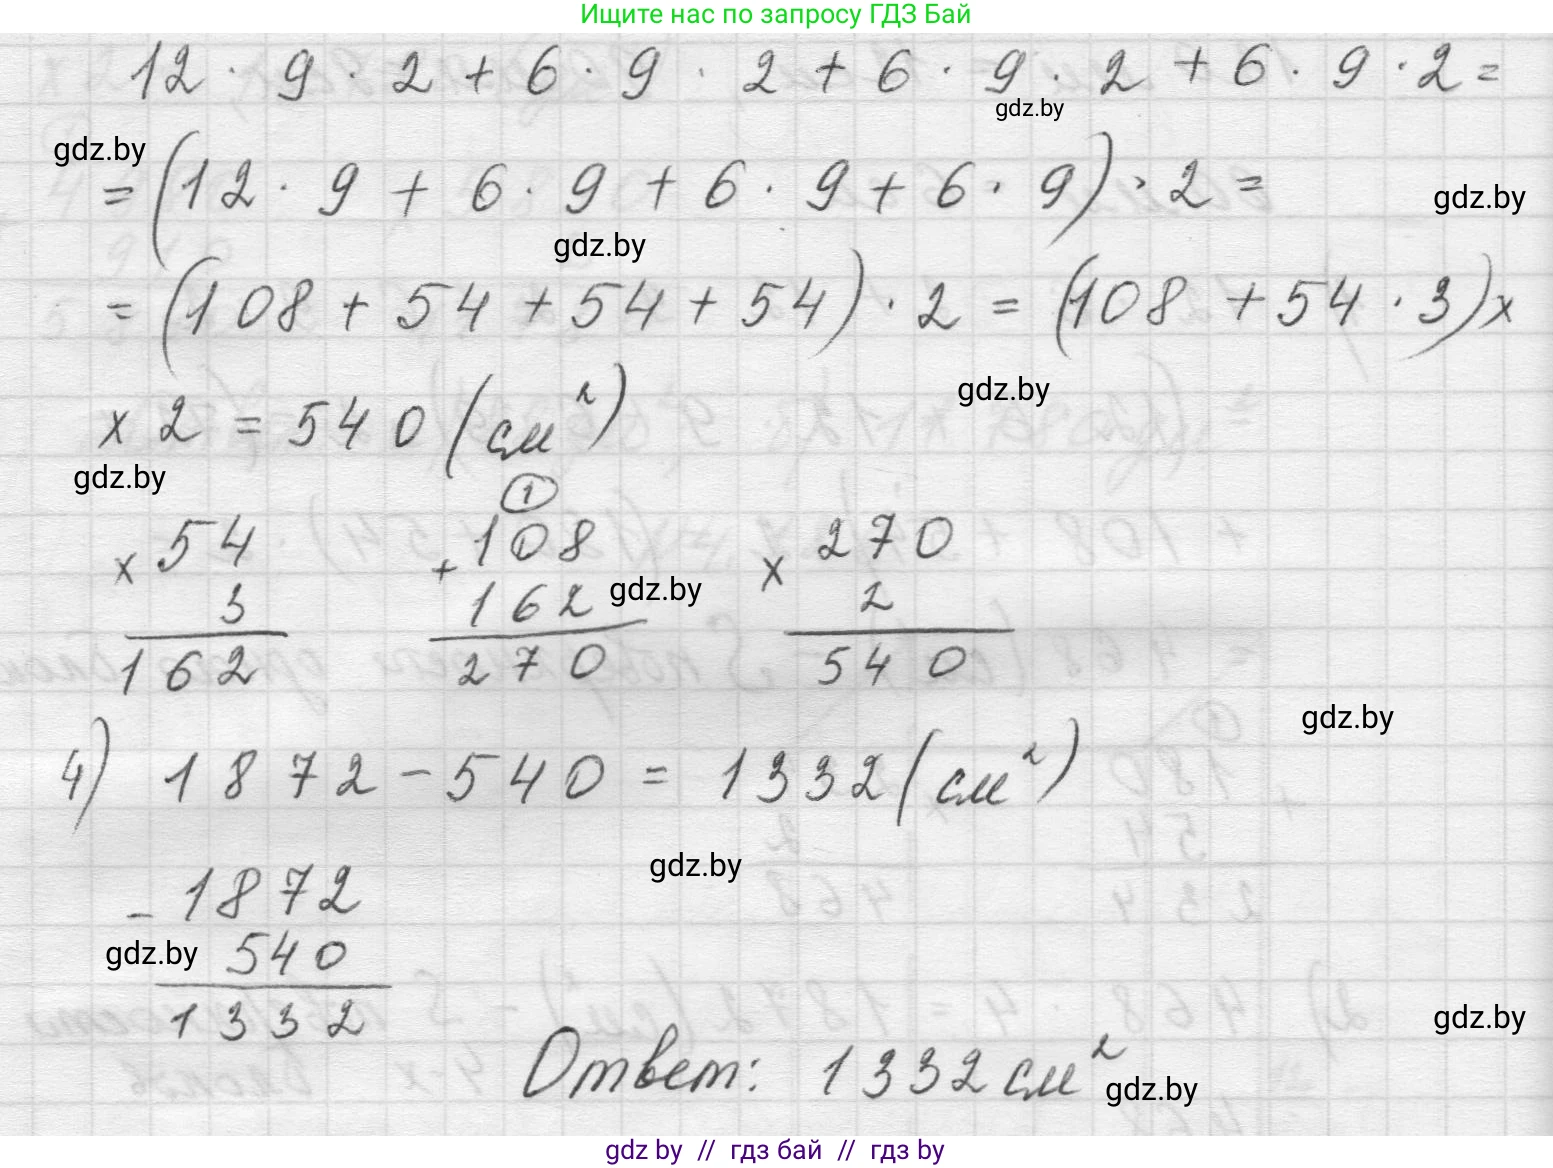 Ищите нас по запросу ГДЗ Бай
12 · 9 · 2 + 6 · 9 · 2 + 6 · 9 · 2 + 6 · 9 · 2 =
gdz.by
gdz.by
= (12 · 9 + 6 · 9 + 6 · 9 + 6 · 9) · 2 =
gdz.by
gdz.by
= (108 + 54 + 54 + 54) · 2 = (108 + 54 · 3) x
gdz.by
x 2 = 540 (см²)
gdz.by
1
x 54 + 108 x 270
3 162 2
gdz.by
162 270 540
gdz.by
4) 1872 - 540 = 1332 (см²)
gdz.by
- 1872
gdz.by 540
1332
gdz.by
Ответ: 1332 см²
gdz.by
gdz by // гдз бай // гдз by